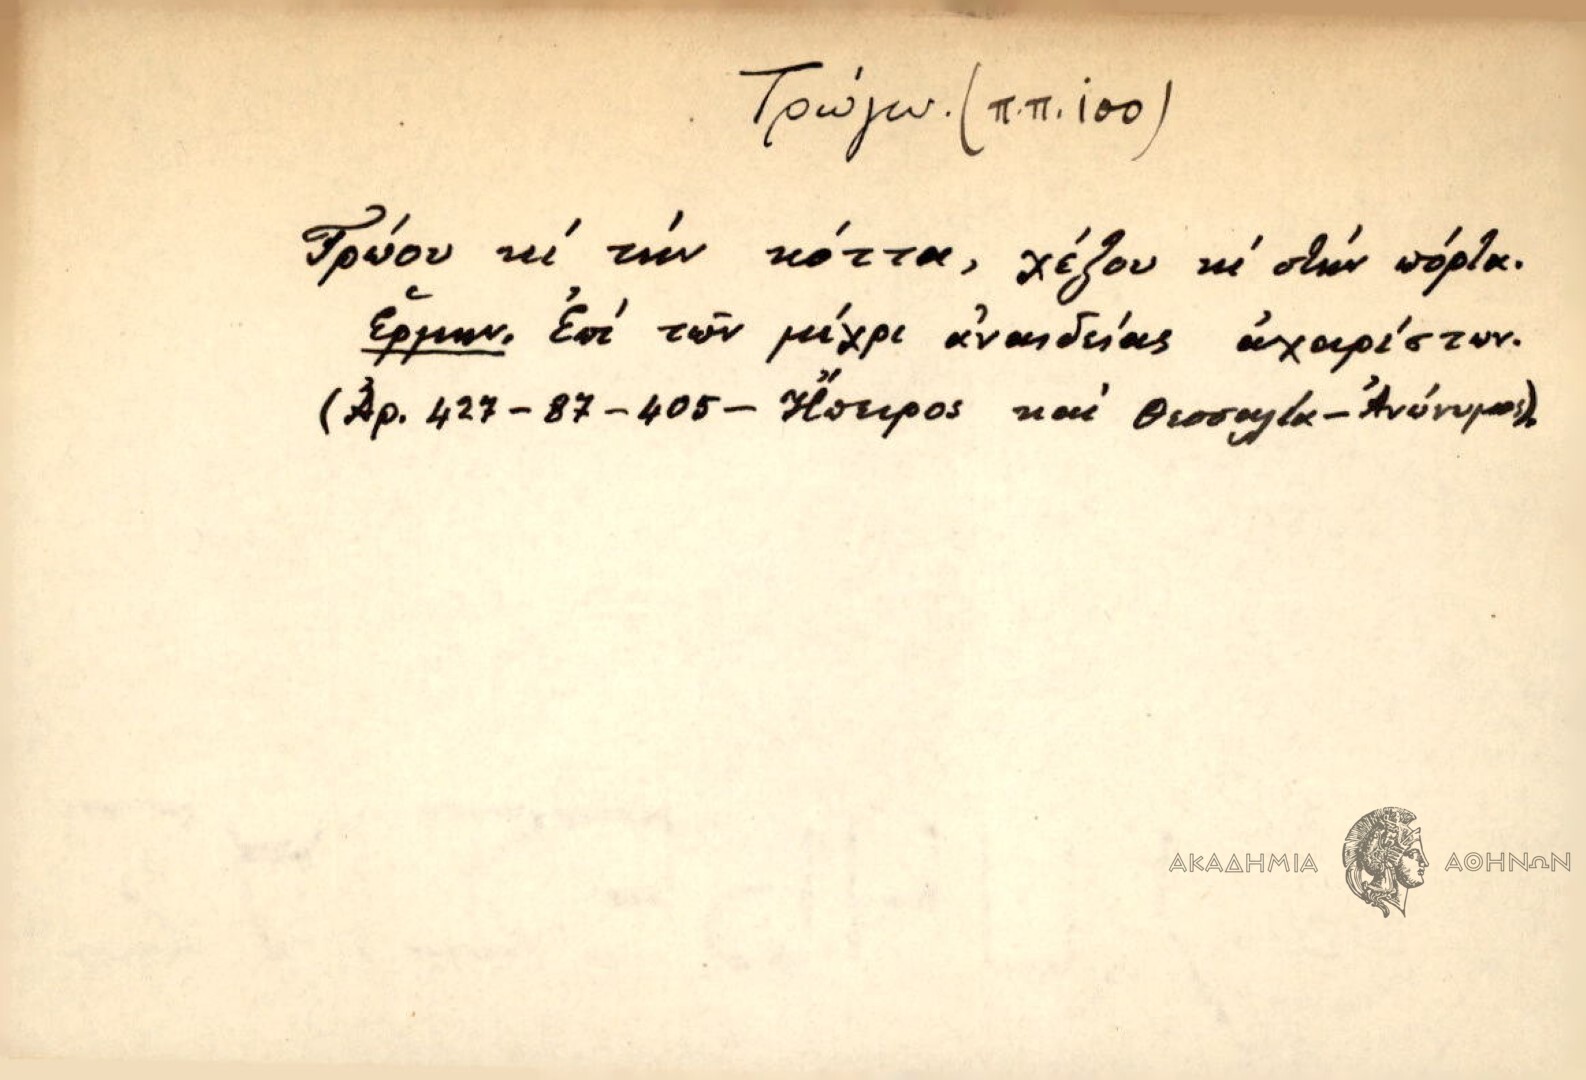 Τρώγω. (π.π. ἰσο)
Τρώου κί τήν κόττα, χέζου κί στήν πόρτα.
Ἑρμην. Ἐπί τῶν μέχρι ἀναιδείας ἀχαρίστων.
(Ἀρ. 427-87-405- Ἤπειρος καί Θεσσαλία-Ἀνώνυμος).
ΑΚΑΔΗΜΙΑ ΑΘΗΝΩΝ